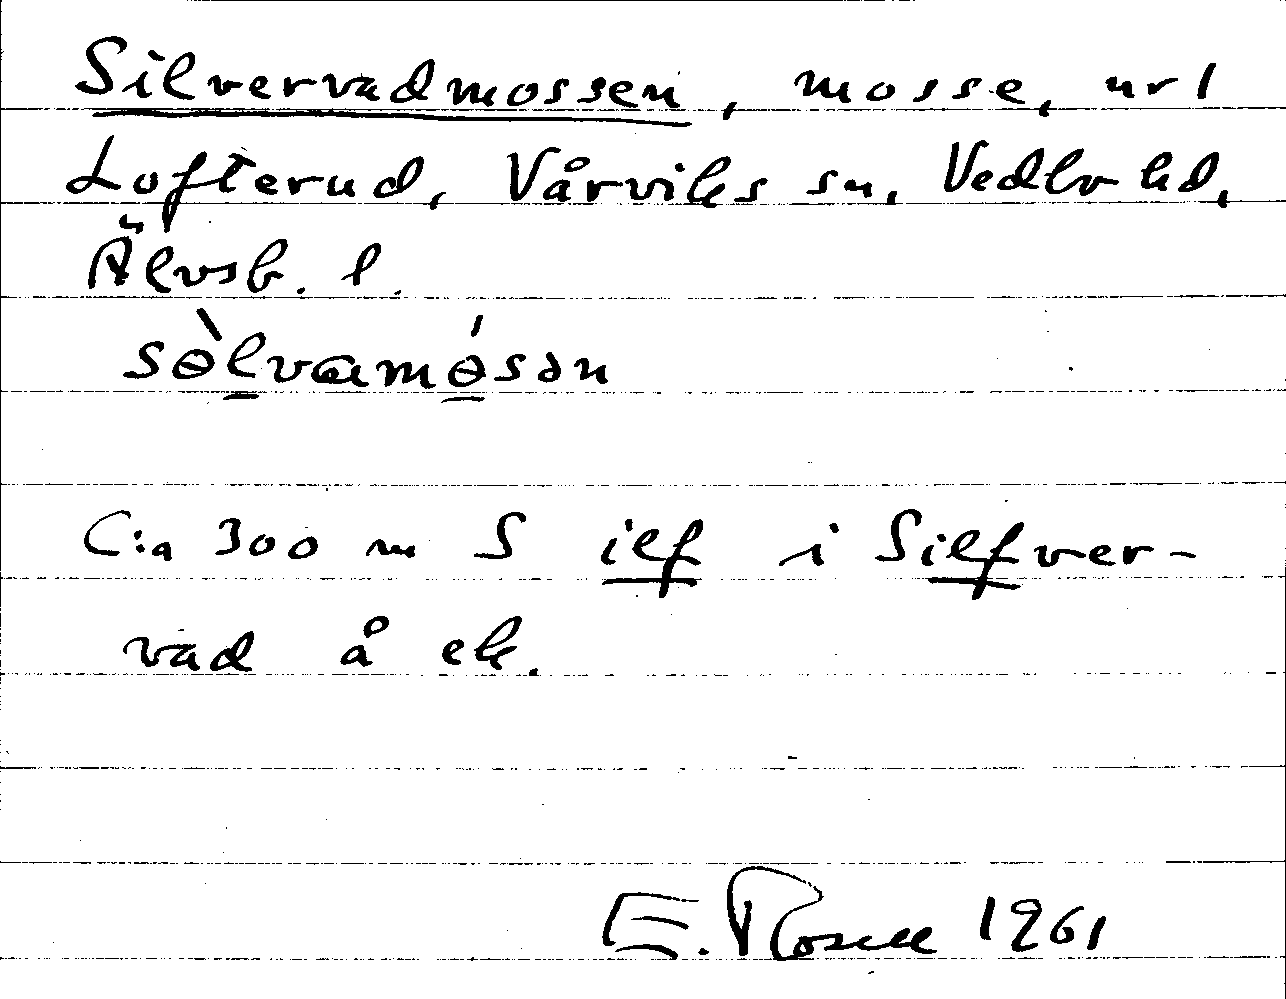 Silvervadmossen, mosse, nr 1
Lofterud, Vårviks sn, Vedbo hd,
Älvsb. l.
sɵ̀lvamɵ́sən
C:a 300 m S ilf i Silfver-
vad å ek.
E. Rosell 1961